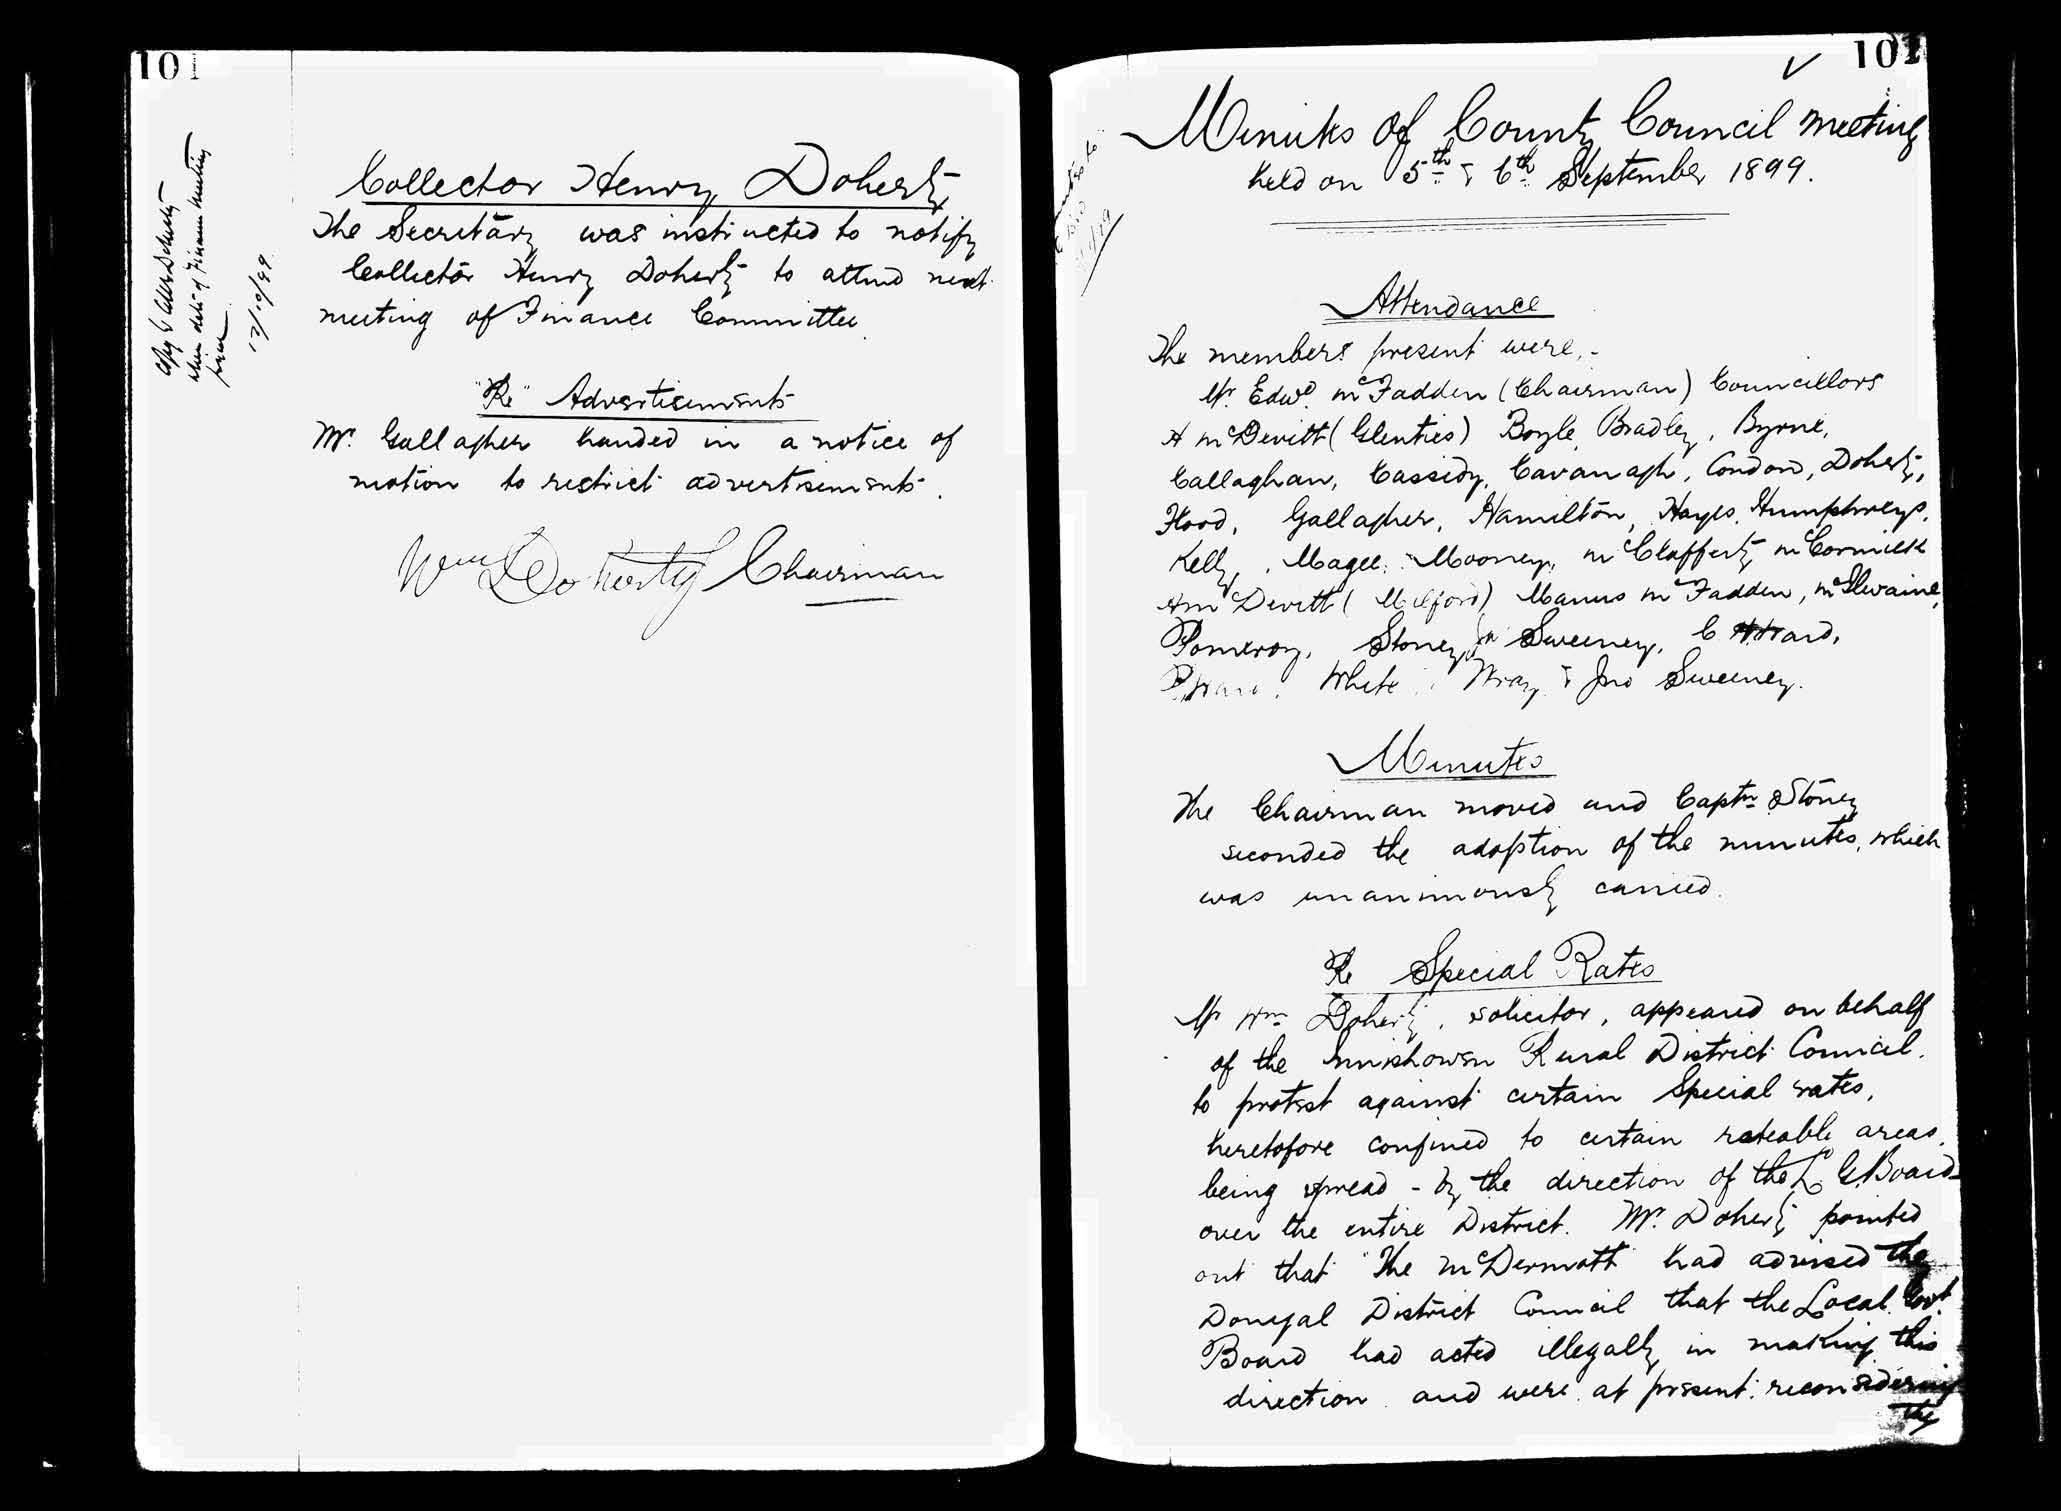 101
Collector Henry Doherty
The Secretary was instructed to notify
Collector Henry Doherty to attend next
meeting of Finance Committee.
"Re" Advertisements
Mr. Gallagher handed in a notice of
motion to restrict advertisements.
Wm Doherty Chairman
when date of Finance Meeting
12/10/99
102
Minutes of County Council Meeting
held on 5th & 6th September 1899.
Attendance
The members present were,-
Mr. Edwd. McFadden (Chairman) Councillors
H McDevitt (Glenties) Boyle, Bradley, Byrne,
Callaghan, Cassidy, Cavanagh, Condon, Doherty,
Flood, Gallagher, Hamilton, Hayes, Humphreys,
Kelly, Magee, Mooney, McClafferty McCormick
A McDevitt (Milford) Manus McFadden, McIlwaine,
Pomeroy, Stoney, Jn Sweeney, C Ward,
P Ward, White, Wray & Jno Sweeney.
Minutes
The Chairman moved and Captn Stoney
seconded the adoption of the minutes, which
was unanimously carried.
Re Special Rates
Mr Wm Doherty, solicitor, appeared on behalf
of the Innishowen Rural District Council,
to protest against certain Special rates,
heretofore confined to certain rateable areas,
being spread - by the direction of the L. G. Board -
over the entire District. Mr. Doherty pointed
out that "The McDermott" had advised the
Donegal District Council that the Local Govt
Board had acted illegally in making this
direction and were at present reconsidering
the